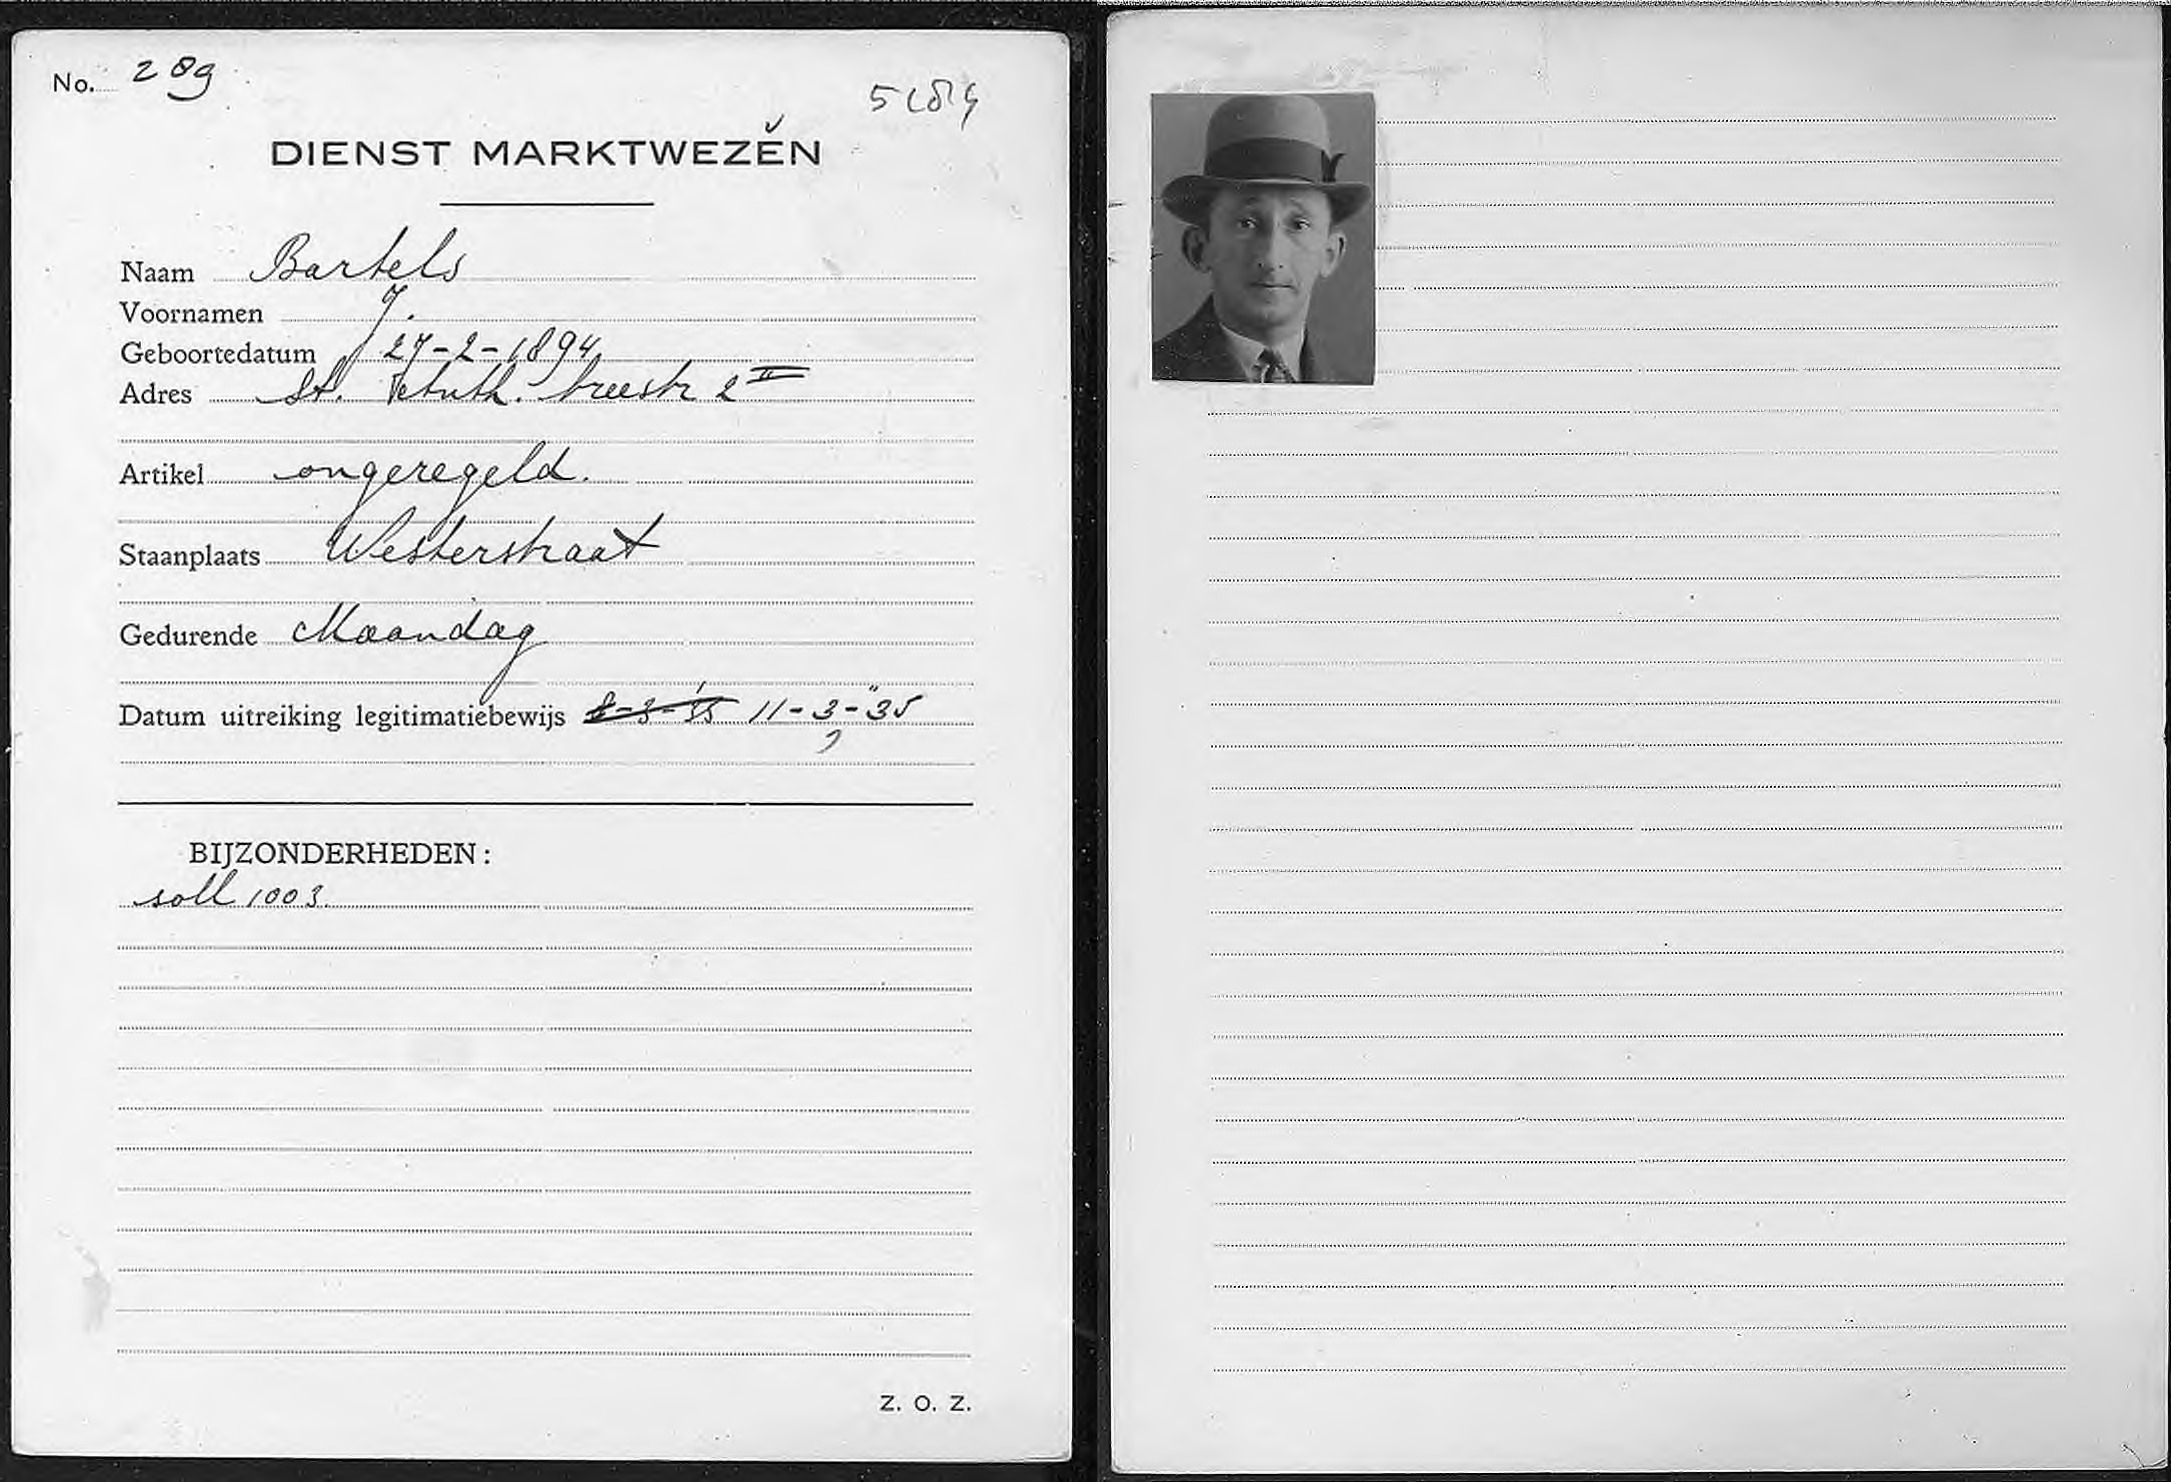 No. 289
DIENST MARKTWEZEN
Naam Bartels
Voornamen J.
Geboortedatum 27-2-1894
Adres St. breestr 2 II
Artikel ongeregeld.
Staanplaats Westerstraat
Gedurende Maandag
Datum uitreiking legitimatiebewijs 8-3-'35 11-3-"35
BIJZONDERHEDEN:
soll 1003.
Z. O. Z.